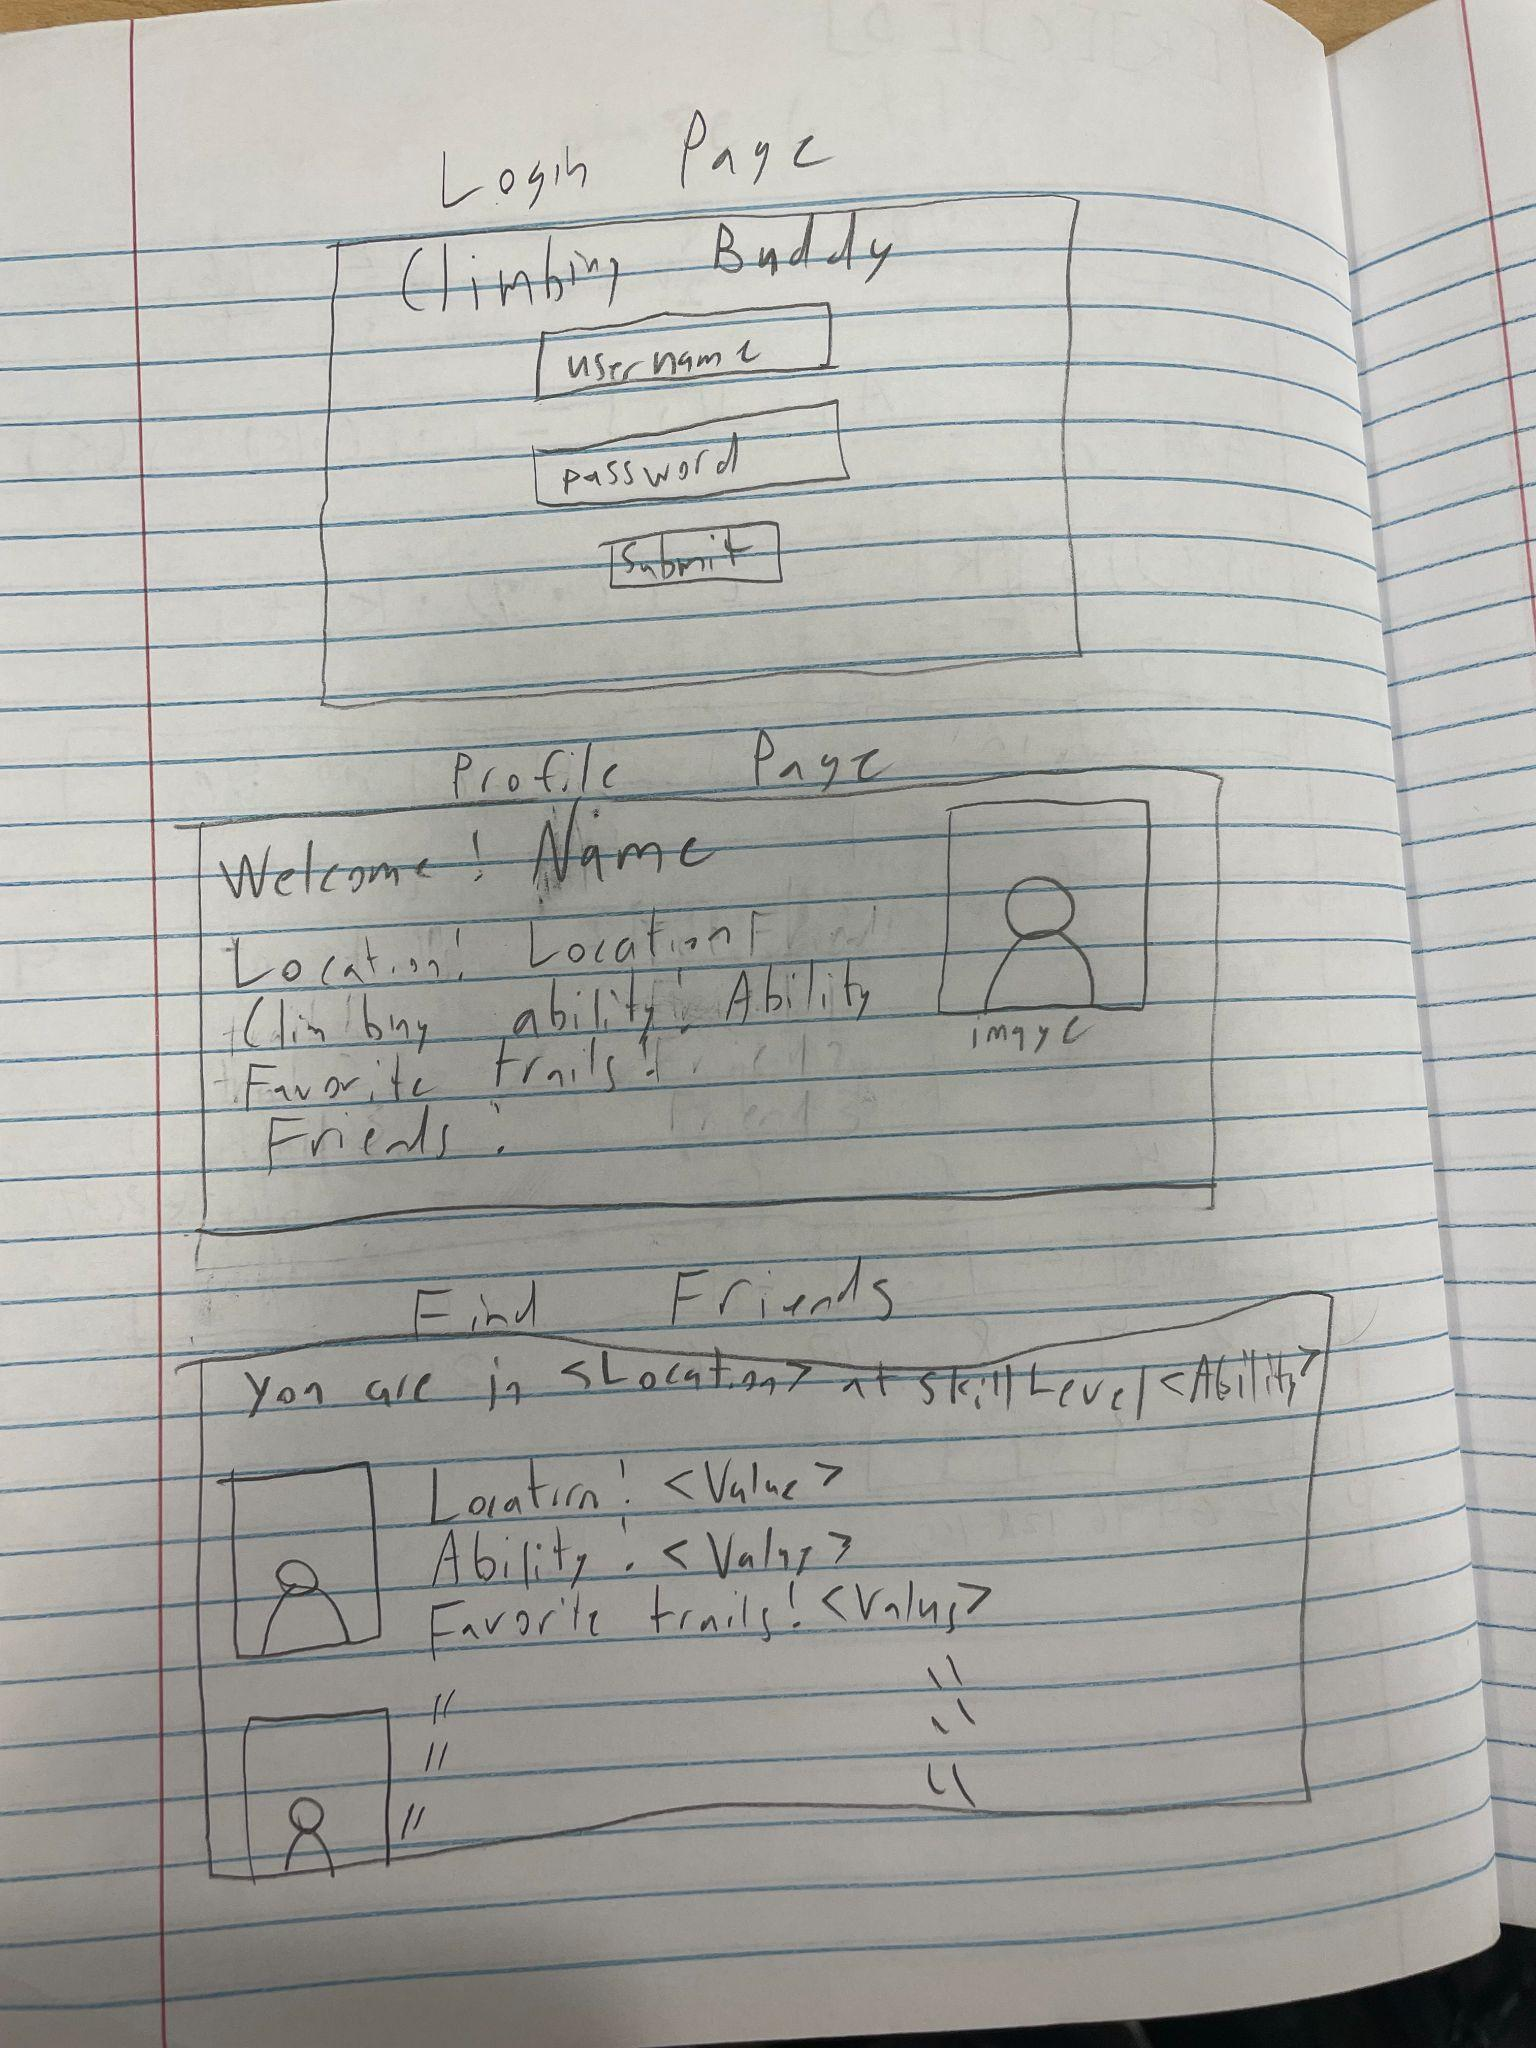 Login Page
Climbing Buddy
username
password
Submit
Profile Page
Welcome! Name
Location: Location
Climbing ability: Ability
Favorite trails:
Friends:
image
Find Friends
You are in <Location> at skill Level <Ability>
Location: <Value>
Ability: <Value>
Favorite trails: <Values>
" "
" "
" "